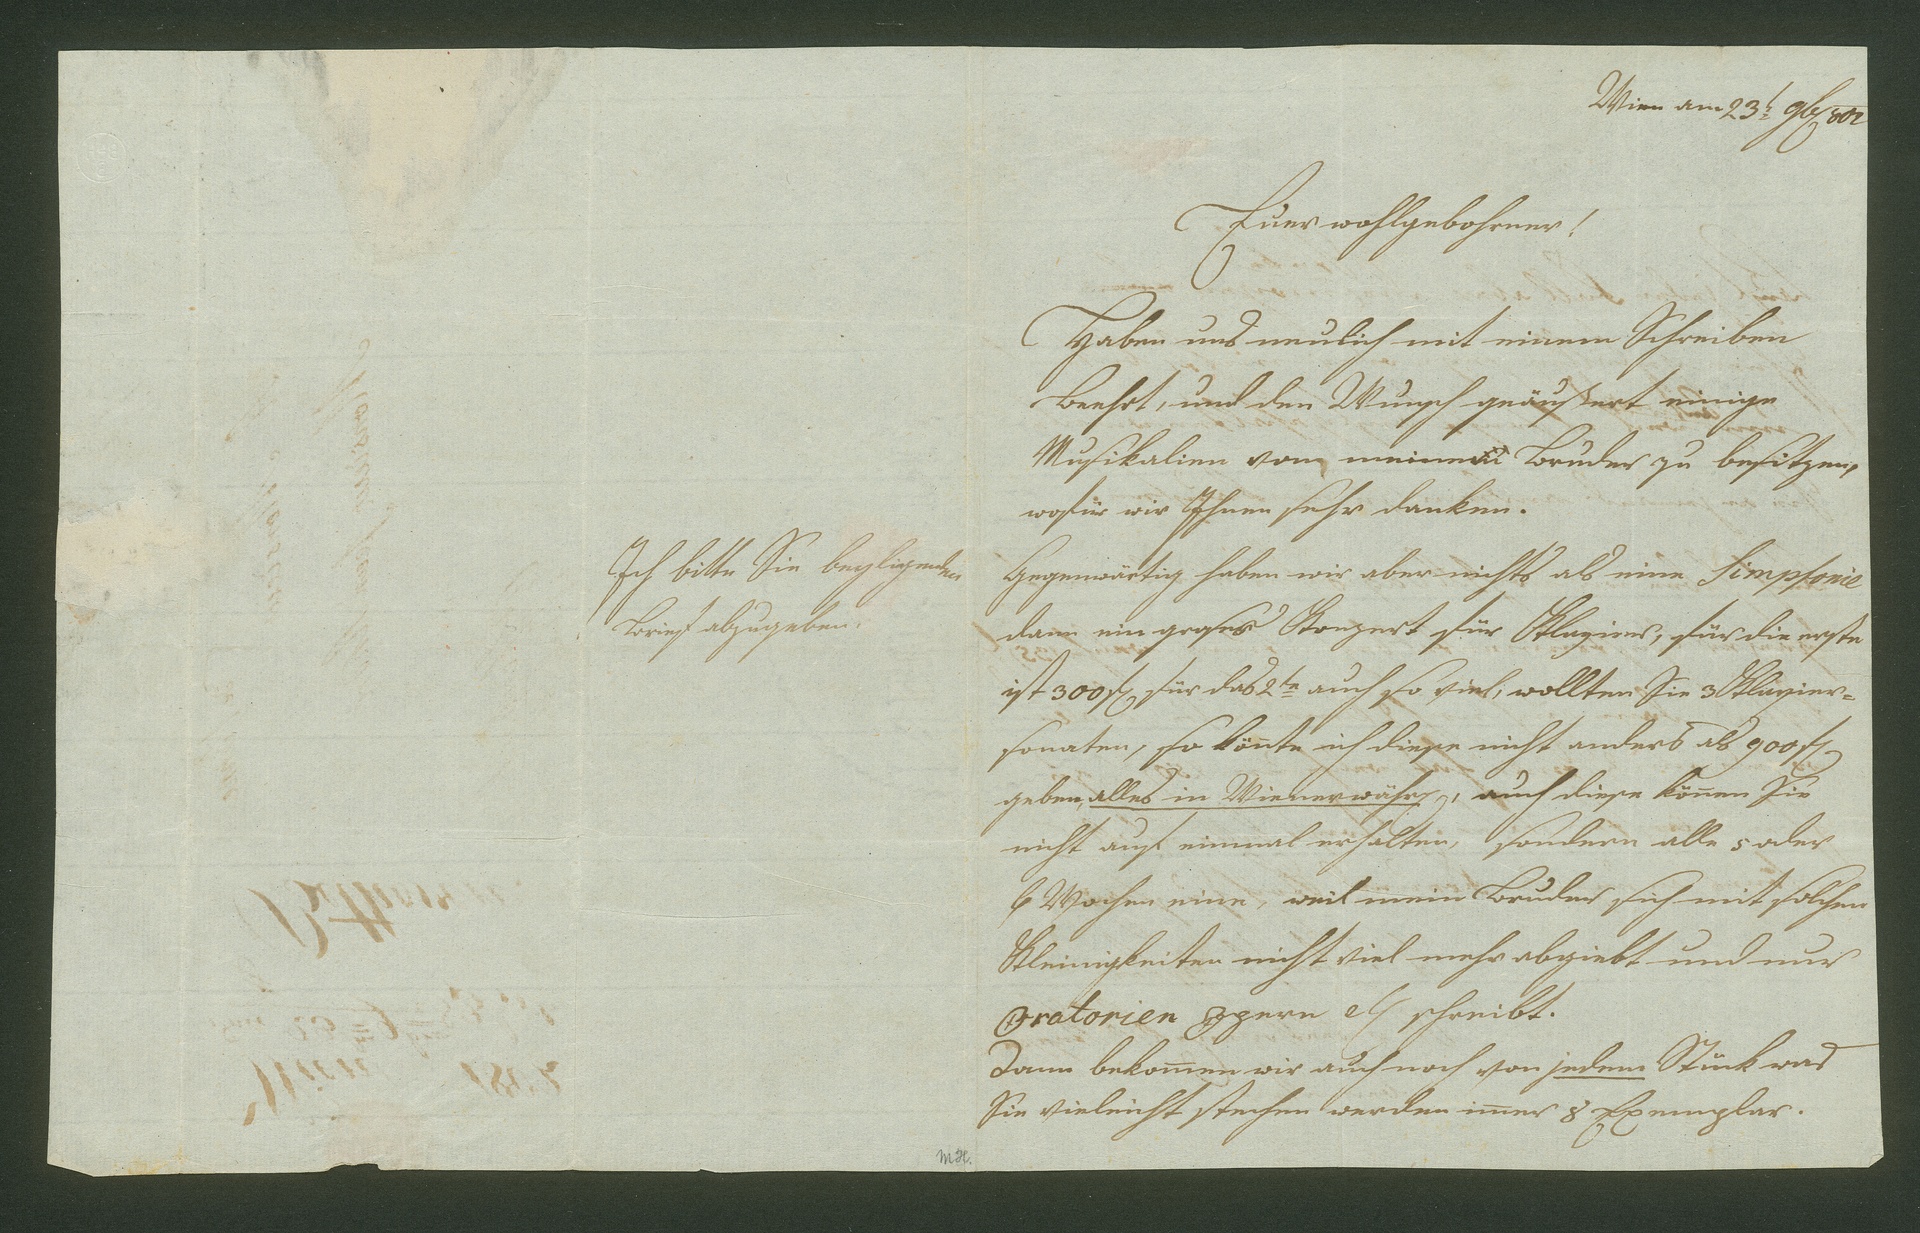 Wien am 23t 9b 802
Euer wohlgebohrner!
Haben uns neulich mit einem Schreiben
Beehrt, und den Wunsch geäussert einige
Musikalien von meinem Bruder zu besitzen,
wofür wir Ihnen sehr danken.
Gegenwärtig haben wir aber nichts als eine Simpfonie
dann ein groses Konzert für Klavier, für die erste
ist 300 f für das 2te auch so viel, wollten Sie 3 Klavier=
sonaten, so könnte ich diese nicht anders als 900 f
geben, alles in Wienerwähr, auch diese können Sie
nicht auf einmal erhalten, sondern alle 5 oder
6 Wochen eine, weil mein Bruder sich mit solchen
Kleinigkeiten nicht viel mehr abgiebt und nur
Oratorien Opern etc schreibt.
Dann bekommen wir auch noch von jedem Stück was
Sie vieleicht stechen werden immer 8 Exemplar.
Ich bitte Sie beyligenden
Brief abzugeben.
MH.